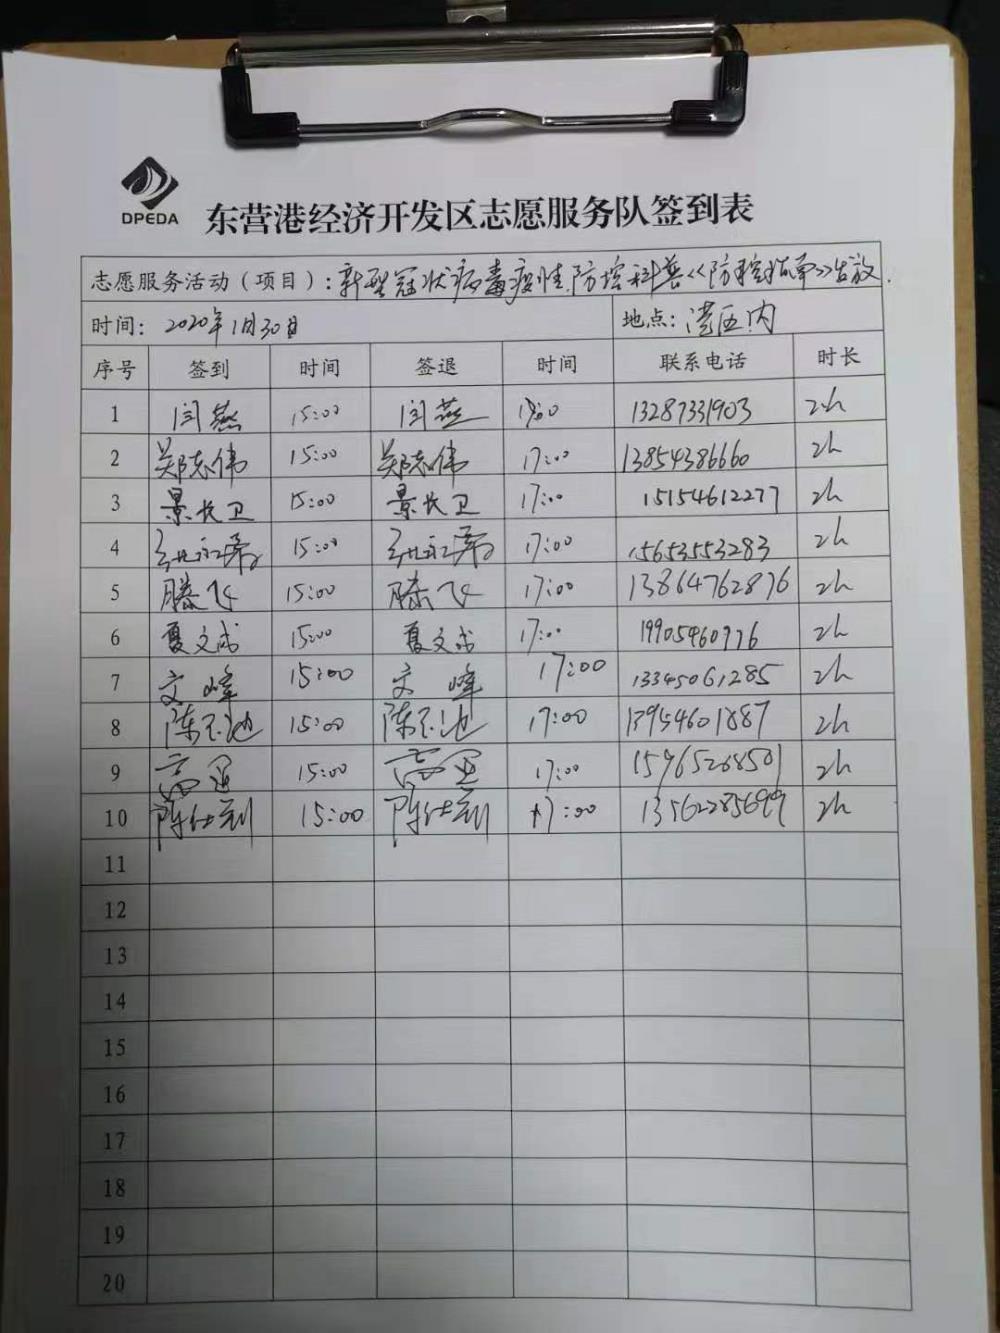 DPEDA
东营港经济开发区志愿服务队签到表
志愿服务活动（项目）：新型冠状病毒疫性防控科普《防控指南》发放.
时间： 2020年1月30日 地点：港区内
序号 签到 时间 签退 时间 联系电话 时长
1 闫燕 15:00 闫燕 17:00 13287331903 2h
2 郑志伟 15:00 郑志伟 17:00 13854386660 2h
3 景长卫 15:00 景长卫 17:00 15154612277 2h
4 15:00 17:00 15653553283 2h
5 滕飞 15:00 滕飞 17:00 13864762876 2h
6 夏文成 15:00 夏文成 17:00 19905460776 2h
7 文峰 15:00 文峰 17:00 13345061285 2h
8 15:00 17:00 13954601887 2h
9 15:00 17:00 15965268501 2h
10 15:00 17:00 13562285699 2h
11
12
13
14
15
16
17
18
19
20